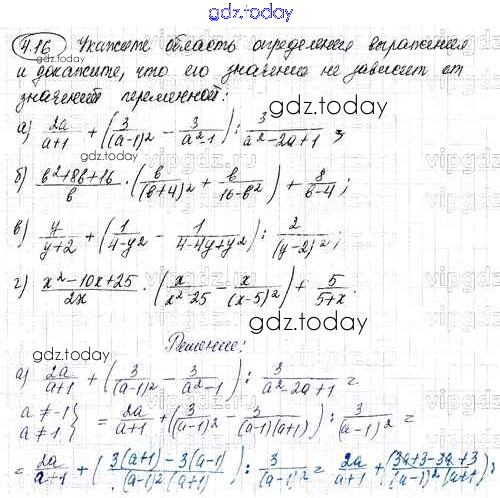 gdz.today
4.16 Укажите область определения выражения
и докажите, что его значение не зависит от
значений переменной:
gdz.today
а) 2a/(a+1) + (3/(a-1)² - 3/(a²-1)) : 3/(a²-2a+1);
gdz.today
б) (b²+8b+16)/b · (b/(b+4)² + b/(16-b²)) + 8/(b-4);
в) y/(y+2) + (1/(4-y²) - 1/(4-4y+y²)) : 2/(y-2)²;
г) (x²-10x+25)/2x · (x/(x²-25) - x/(x-5)²) + 5/(5+x).
gdz.today
Решение:
gdz.today
а) 2a/(a+1) + (3/(a-1)² - 3/(a²-1)) : 3/(a²-2a+1) =
a ≠ -1
a ≠ 1 } = 2a/(a+1) + (3/(a-1)² - 3/((a-1)(a+1))) : 3/(a-1)² =
= 2a/(a+1) + (3(a+1)-3(a-1))/((a-1)²(a+1)) : 3/(a-1)² = 2a/(a+1) + (3a+3-3a+3)/((a-1)²(a+1)) :
gdz.today